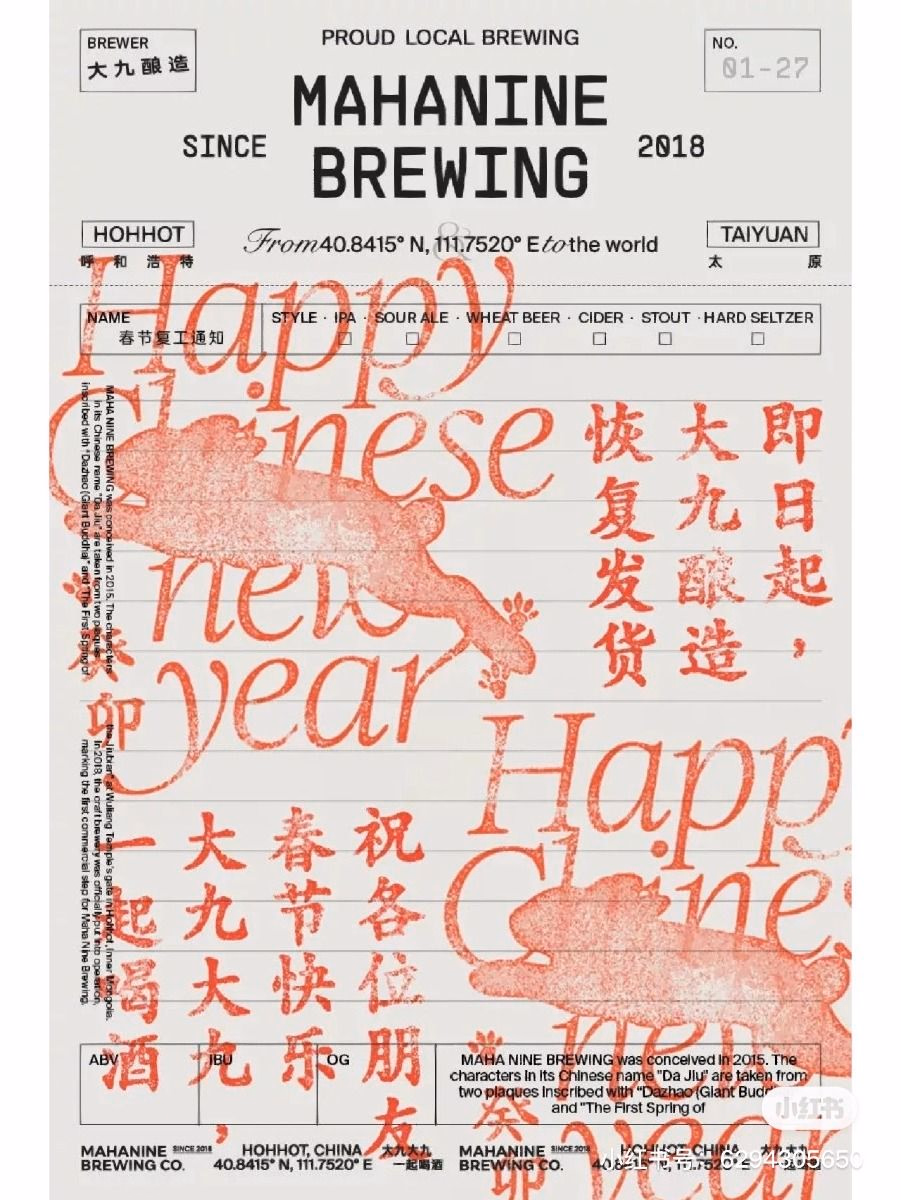 BREWER
大九酿造
PROUD LOCAL BREWING
NO.
01-27
MAHANINE
SINCE
2018
BREWING
HOHHOT
呼和浩特
From 40.8415° N, 111.7520° E to the world
&
TAIYUAN
太原
NAME
春节复工通知
STYLE · IPA · SOUR ALE · WHEAT BEER · CIDER · STOUT · HARD SELTZER
Happy
Chinese
new
year
即日起，
大九酿造
恢复发货
MAHA NINE BREWING was conceived in 2015. The characters
in its Chinese name "Da Jiu" are taken from two plaques
inscribed with "Dazhao (Giant Buddha)" and "The First Spring of
the Jiubian" at Wuliang Temple's gate in Hohhot, Inner Mongolia.
In 2018, the craft brewery was officially put into operation,
marking the first commercial step for Maha Nine Brewing.
癸卯
祝各位朋友
春节快乐
大九大九，
一起喝酒
Happy
Chinese
new
year
癸卯
ABV
IBU
OG
MAHA NINE BREWING was conceived in 2015. The
characters in its Chinese name "Da Jiu" are taken from
two plaques inscribed with "Dazhao (Giant Budd
and "The First Spring of
MAHANINE
BREWING CO.
SINCE 2018
HOHHOT, CHINA
40.8415° N, 111.7520° E
大九大九
一起喝酒
MAHANINE
BREWING CO.
SINCE 2018
HOHHOT, CHINA
40.8415° N, 111.7520° E
大九大九
小红书
小红书号:6294305650